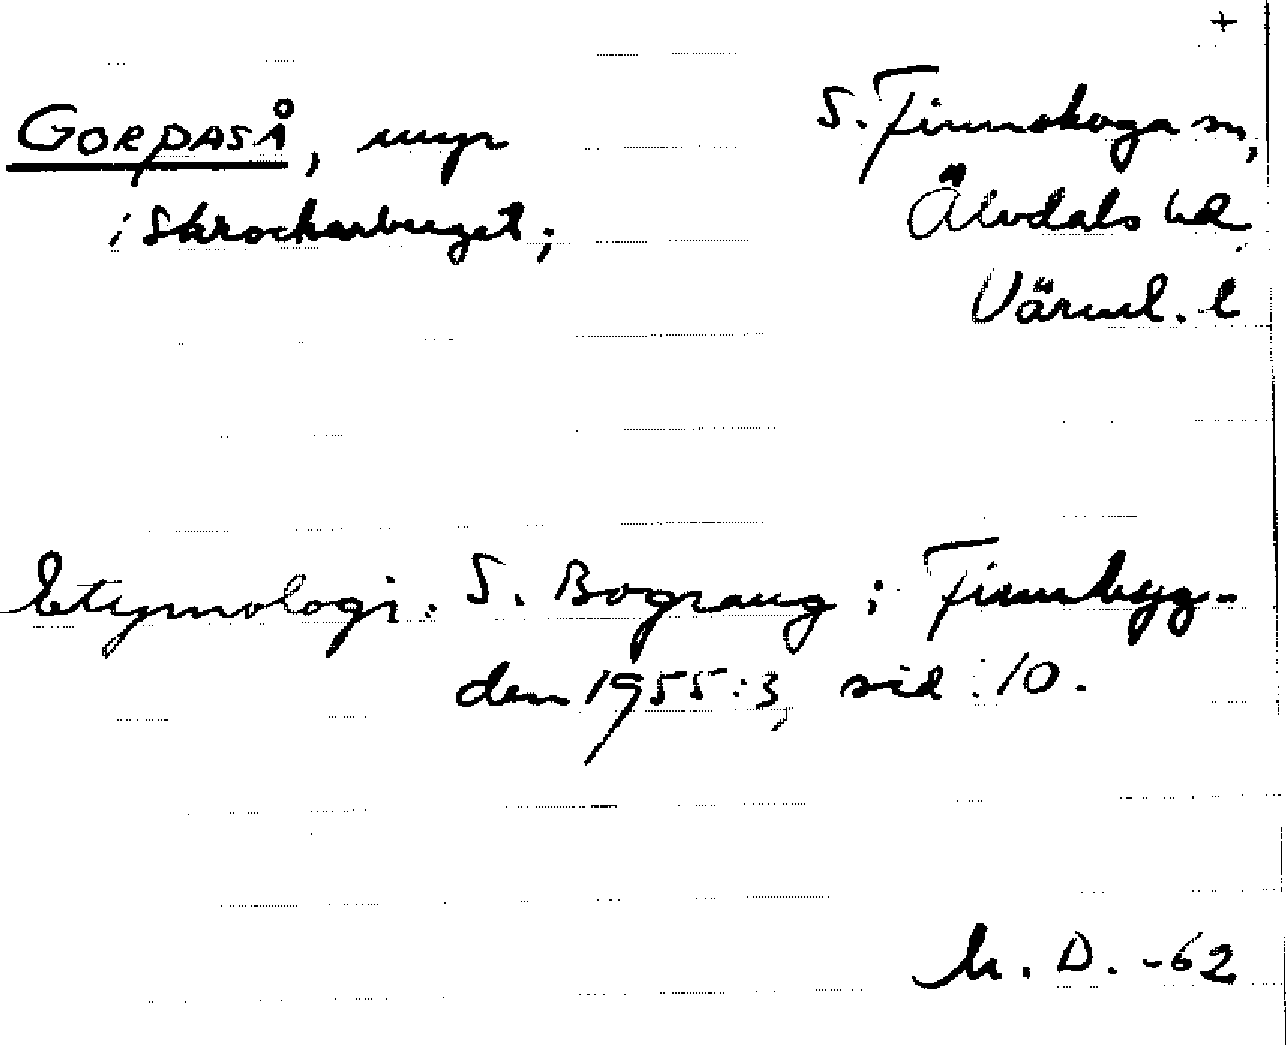 +
GORPASÅ, myr
S. Finnskoga sn,
i Skrockarberget;
Älvdals hd
Värml. l
Etymologi: S. Bograng i Finnbyg-
den 1955:3, sid 10.
D. -62